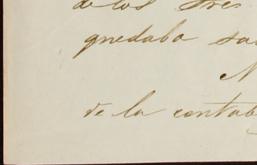 de los tres
quedaba sa
N
de la contab